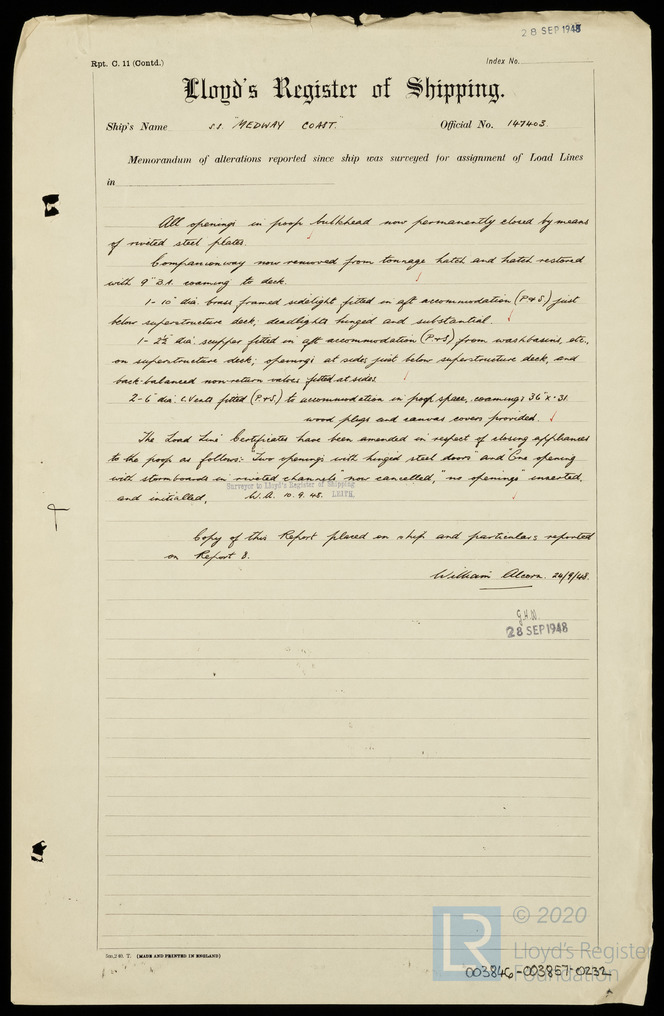 28 SEP 1948
Rpt. C. 11 (Contd.)
Index No.
Lloyd's Register of Shipping.
Ship's Name S.S. "MEDWAY COAST." Official No. 147403.
Memorandum of alterations reported since ship was surveyed for assignment of Load Lines
in
All openings in poop bulkhead now permanently closed by means
of riveted steel plates.
Companionway now removed from tonnage hatch and hatch restored
with 9" B.A. coaming to deck.
1- 10" dia. brass framed sidelight fitted in aft accommodation (P & S.) just
below superstructure deck, deadlights hinged and substantial.
1- 2½" dia. scupper fitted in aft accommodation (P & S.) from washbasins, etc.,
on superstructure deck; openings at sides just below superstructure deck, and
back-balanced non-return valves fitted at sides.
2-6" dia. C. Vents fitted (P. & S.) to accommodation in poop space, coamings 36" x .31
wood plugs and canvas covers provided.
The Load Line Certificates have been amended in respect of closing appliances
to the poop as follows:- "Two openings with hinged steel doors" and "One opening
with stormboards in riveted channels" now cancelled, "no openings" inserted,
and initialled, W.A. 10.9.48.
Surveyor to Lloyd's Register of Shipping
LEITH.
Copy of this Report placed on ship and particulars reported
on Report 8.
William Alcorn. 24/9/48.
28 SEP 1948
(MADE AND PRINTED IN ENGLAND)
LR
© 2020
Lloyd's Register
Foundation
003846-003857-0232